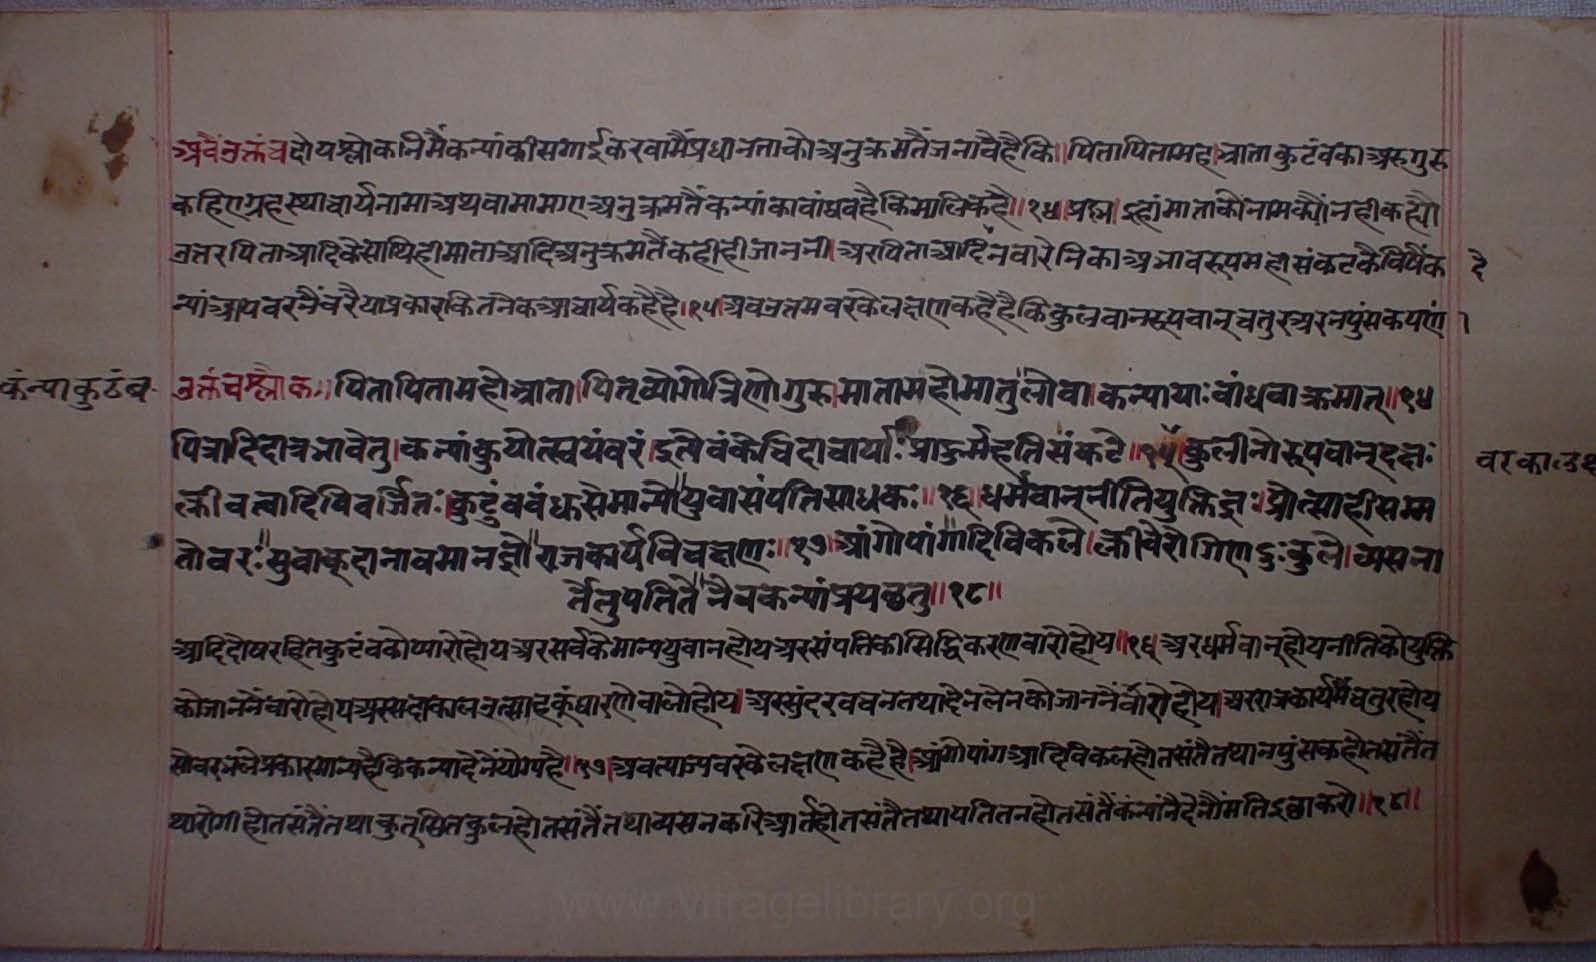 अवैउक्तंचदोयश्लोकनिमैंकन्यांकीसगाईकरवामैंप्रधानताकोअनुक्रमतैंजनावैहैकि॥पितापितामह।भ्राताकुटंवकाअरुगुरु
कहिएगृहस्थाचार्यनामाअथवामामाएअनुक्रमतैंकन्यांकावांधवहैकिमालिकहै॥१४॥प्रश्न।इहांमाताकौनामक्यौंनहीकह्यौ
उत्तरपिताआदिकेसाथिहीमाताआदिअनुक्रमतैंकहीहीजाननी।अरपिताआदिनवारेनिकाअभावरूपमहासंकटकैविषैंक दे
न्यांआपवरनैंवरैयाप्रकारकितनेकआचार्यकहैहै॥१५॥अवउत्तमवरकेलक्षणकहैहैकिकुलवानरूपवान्चतुरअरनपुंसकपणं ।
कंन्याकुटंव. उक्तंचश्लोक॥पितापितामहोभ्राता।पितृव्योगोत्रिणोगुरु।मातामहोमातुलोवा।कन्यायाःवांधवाक्रमात्॥१४
पित्रादिदात्रभावेतु।कन्यांकुर्यात्स्वयंवरं।इत्येवंकेचिदाचार्याःप्राहुर्महतिसंकटे॥१५॥कुलीनोरूपवान्दक्षः वरका.
क्लीवत्वादिविवर्जितः।कुटुंववंधुसेमान्यो॥युवासंपत्तिसाधकः॥१६॥धर्मवान्नीतियुक्तिज्ञः।प्रोत्साहीसम्म
तोवरः॥सुवाक्दानावमानज्ञो॥राजकार्यविचक्षणः॥१७॥आंगोपांगादिविकले।क्लीवेरोगिणिदुःकुले।व्यसना
र्त्तेतुपतिते॥नैवकन्यांप्रयच्छतु॥१८॥
आदिदोषरहितकुटंवकोप्यारोहोयअरसर्वकेमान्ययुवानहोयअरसंपत्तिकीसिद्धिकरणवारोहोय॥१६॥अरधर्मवान्होयनीतिकीयुक्ति
कोजाननैंवारोहोयअरसदाकालउत्साहकूंधारणेवालोहोय।अरसुंदरवचनतथादेनलेनकोजाननैंवारोहोय।अरराजकार्यमैंचतुरहोय
सोवरभलेप्रकारमान्यहैकिकन्यादेनेंयोग्यहै॥१७॥अवत्याज्यवरकेलक्षणकहैहै।आंगोपांगआदिविकलहोतसंतैतथानपुंसकहोतसंतैंत
थारोगीहोतसंतैंतथाकुत्सितकुलहोतसंतैंतथाव्यसनकरिआर्त्तहोतसंतैतथापतितनहोतसंतैंकंन्यांनैदेनौंमतिइछाकरो॥१८॥
www.vitragelibrary.org